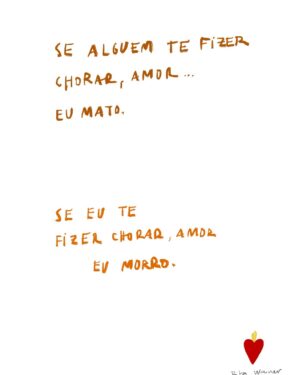 SE ALGUEM TE FIZER
CHORAR, AMOR...
EU MATO.
SE EU TE
FIZER CHORAR, AMOR
EU MORRO.
Rita Wainer